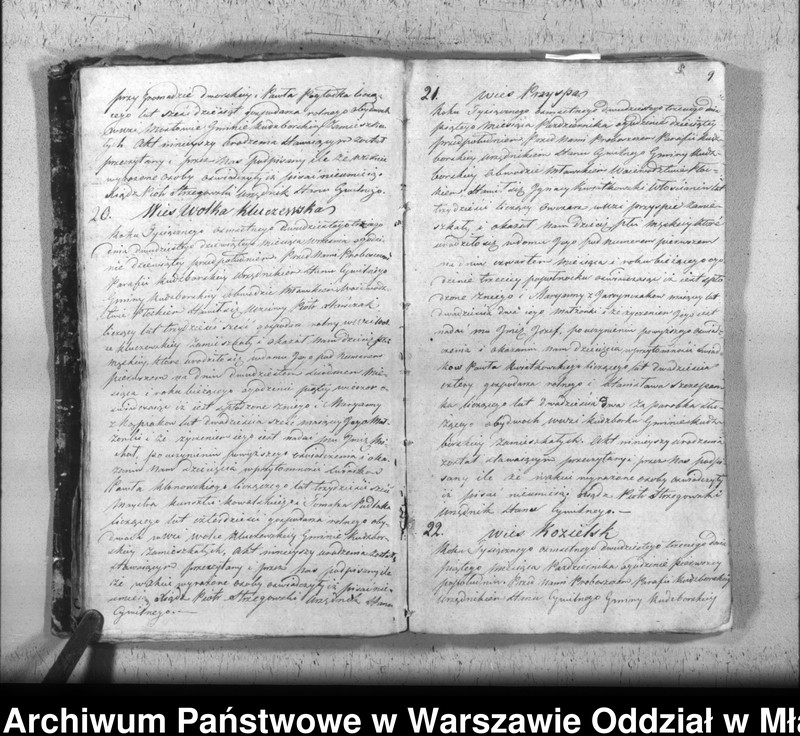 przy Gromadzie dworskiey i Pawła
lat sześćdziesiąt gospodarza rolnego obydwoch
w wsi Gminie Kudzborskiey zamieszka-
łych. Akt ninieyszy urodzenia stawaiącym został
przeczytany i przez Nas podpisany ile że wzwiż
wyrażone osoby oświadczyły iż pisać nieumieią
Xiądz Piotr Strzegowski Urzędnik Stanu Cywilnego.
20. Wieś Wolka Kluczewska
Roku Tysiącznego osmsetnego dwudziestego trzeciego
dnia dwudziestego dziewiątego miesiąca Września o godzi-
nie dziewiątey przed południem. Przed Nami Proboszczem
Parafii Kudzborskiey Urzędnikiem Stanu Cywilnego
Gminy Kudzborskiey w Obwodzie Mławskim Woiewódz-
twie Płockiem stawił się Piotr
liczący lat trzydzieści sześć gospodarz rolny w wsi Wol-
ce Kluczewskiey zamieszkały i okazał Nam dziecię płci
męskiey, które urodziło się w domu Jego pod Numerem
pierwszem na dniu dwudziestem siodmem Mie-
siąca i roku bieżącego o godzinie piątey wieczor o-
świadczaiąc iż iest spłodzone z niego i Maryanny
z lat dwadzieścia sześć maiącey Jego Mał-
żonki i że życzeniem iego iest nadać mu Imię Mi-
chał, po uczynieniu powyższego oświadczenia i oka-
zaniu Nam dziecięcia w przytomności świadkow
Pawła Klonowskiego liczącego lat trzydzieści sześć
kunsztu Kowalskiego i Tomasza
liczącego lat czterdzieści gospodarza rolnego oby-
dwoch w wsi Wolce Kluczewskiey Gminie Kudzbor-
skiey zamieszkałych, Akt ninieyszy urodzenia został
stawaiącym przeczytany i przez Nas podpisany ile
że wzwiż wyrażone osoby oświadczyły iż pisać nie-
umieią Xiądz Piotr Strzegowski Urzędnik Stanu
Cywilnego.
9
21. Wieś Przyspa
Roku Tysiącznego osmsetnego dwudziestego trzeciego dnia
piątego Miesiąca Października o godzinie dziesiątey
przed południem Przed Nami Proboszczem Parafii Kudz-
borskiey Urzędnikiem Stanu Cywilnego Gminy Kudz-
borskiey w Obwodzie Mławskim Woiewództwie Płoc-
kiem stawił się Ignacy Kwiatkowski Włościanin lat
trzydzieści liczący w wsi Przyspie zamie-
szkały i okazał Nam dziecię płci męskiey które
urodziło się w domu Jego pod Numerem pierwszem
na dniu czwartem Miesiąca i roku bieżącego o go-
dzinie trzeciey popołudniu oświadczaiąc iż iest spło-
dzone z niego i Maryanny z maiącey lat
dwadzieścia dwa iego małżonki i że życzeniem Jego iest
nadać mu Imię Jozef, po uczynieniu powyższego oświad-
czenia i okazaniu Nam dziecięcia w przytomności świad-
kow Pawła Kwiatkowskiego liczącego lat dwadzieścia
cztery gospodarza rolnego i Stanisława
liczącego lat dwadzieścia dwa za parobka słu-
żącego obydwoch w wsi Kudzborku Gminie Kudz-
borskiey zamieszkałych. Akt ninieyszy urodzenia
został stawaiącym przeczytany i przez Nas podpi-
sany ile że wzwiż wyrażone osoby oświadczyły
iż pisać nieumieią Xiądz Piotr Strzegowski
Urzędnik Stanu Cywilnego.
22. Wieś Kozielsk
Roku Tysiącznego osmsetnego dwudziestego trzeciego dnia
piątego miesiąca Października o godzinie pierwszey
popołudniu Przed Nami Proboszczem Parafii Kudzborskiey
Urzędnikiem Stanu Cywilnego Gminy Kudzborskiey
Archiwum Państwowe w Warszawie Oddział w Mła